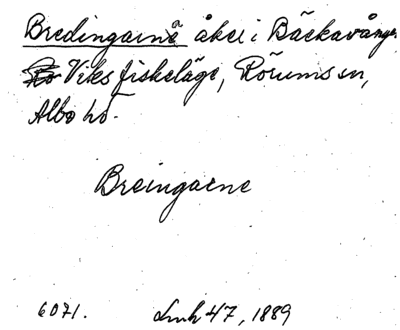 Bredingarne åker i Bäckavången
Viks fiskeläge, Rörums sn,
Albo hd.
Breingarne
6071. Lmh 47, 1889